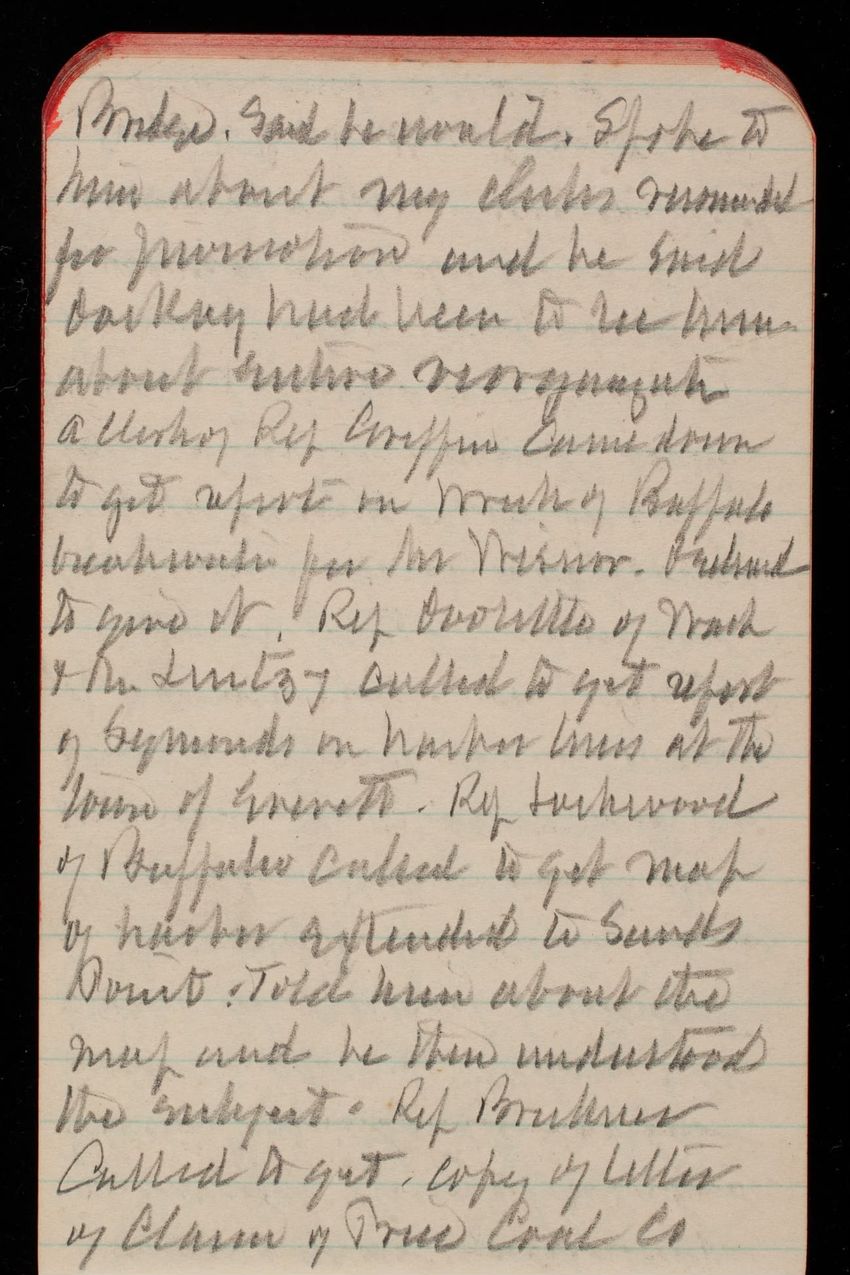 Bridge. Said he would. Spoke to
him about my clerks recommended
for promotion and he said
had been to see him
about entire reorganizatn
a clerk of Rep Griffin came down
to get report on wreck of Buffalo
breakwater for Mr Wisner. Declined
to give it. Rep Doolittle of Wash
& Mr called to get report
of Symonds on harbor lines at the
town of Everett. Rep Lockwood
of Buffalo called to get map
of harbor extended to Sands
Point. Told him about the
map and he then understood
the subject. Rep
Called to get copy of letter
of Claim of Coal Co